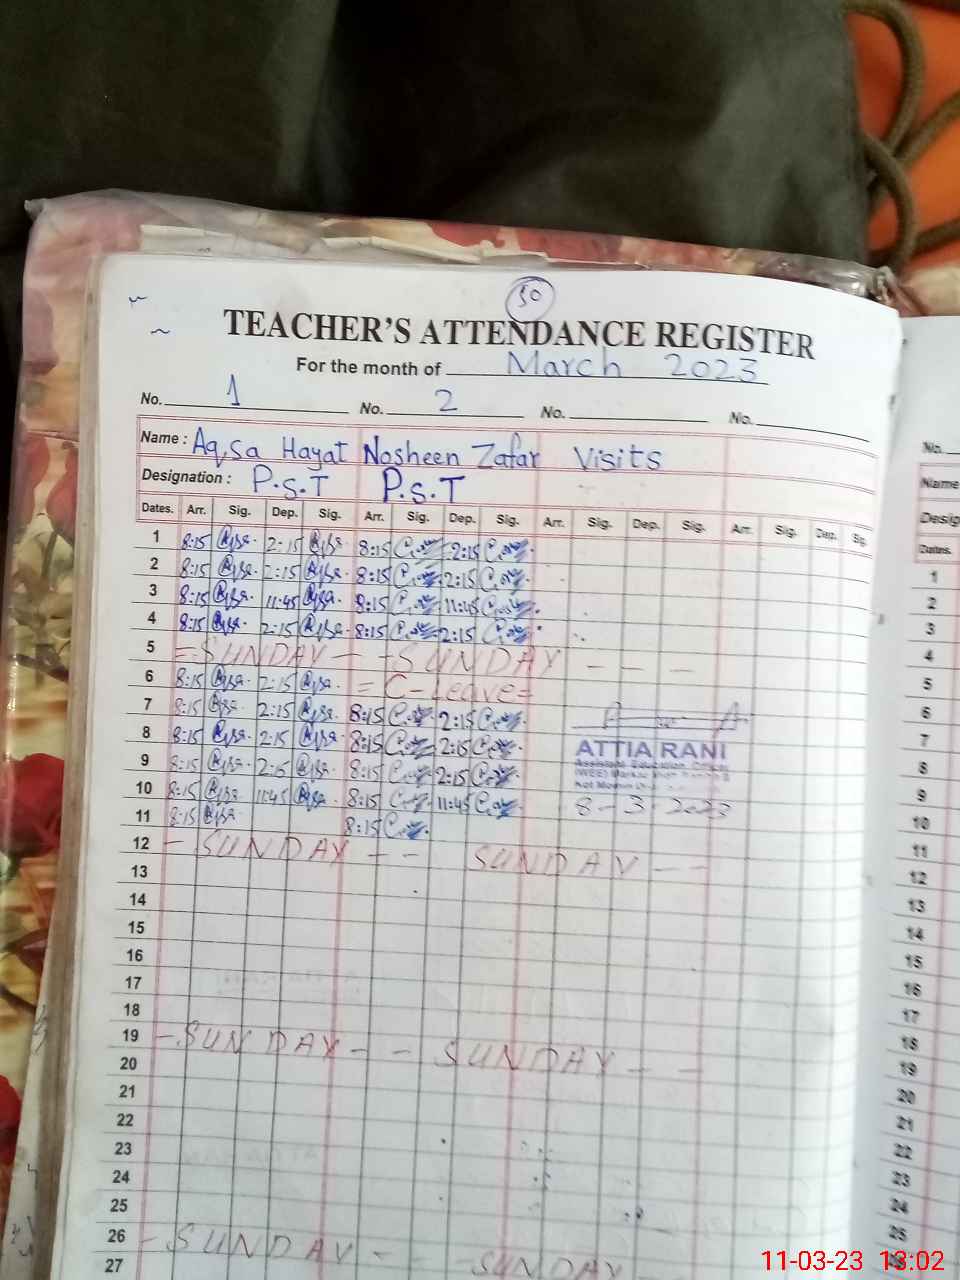 30
TEACHER'S ATTENDANCE REGISTER
For the month of March 2023
No. 1 No. 2 No. No.
Name : Aqsa Hayat Nosheen Zafar Visits
Designation : P.S.T P.S.T
Dates. Arr. Sig. Dep. Sig. Arr. Sig. Dep. Sig. Arr. Sig. Dep. Sig. Arr. Sig. Dep. Sig.
1 8:15 Aqsa 2:15 Aqsa 8:15 2:15
2 8:15 Aqsa 2:15 Aqsa 8:15 2:15
3 8:15 Aqsa 11:45 Aqsa 8:15 11:45
4 8:15 Aqsa 2:15 Aqsa 8:15 2:15
5 = SUNDAY - - SUNDAY - - -
6 8:15 Aqsa 2:15 Aqsa = C-Leave =
7 8:15 Aqsa 2:15 Aqsa 8:15 2:15
8 8:15 Aqsa 2:15 Aqsa 8:15 2:15
9 8:15 Aqsa 2:15 Aqsa 8:15 2:15
10 8:15 Aqsa 11:45 Aqsa 8:15 11:45
11 8:15 Aqsa 8:15
ATTIA RANI
Assistant Education Officer
8-3-2023
12 - SUNDAY - - SUNDAY - -
13
14
15
16
17
18
19 - SUNDAY - - SUNDAY - -
20
21
22
23
24
25
26 - SUNDAY - - SUNDAY -
27
No.
Name
Desig
Dates.
1
2
3
4
5
6
7
8
9
10
11
12
13
14
15
16
17
18
19
20
21
22
23
24
25
11-03-23 13:02